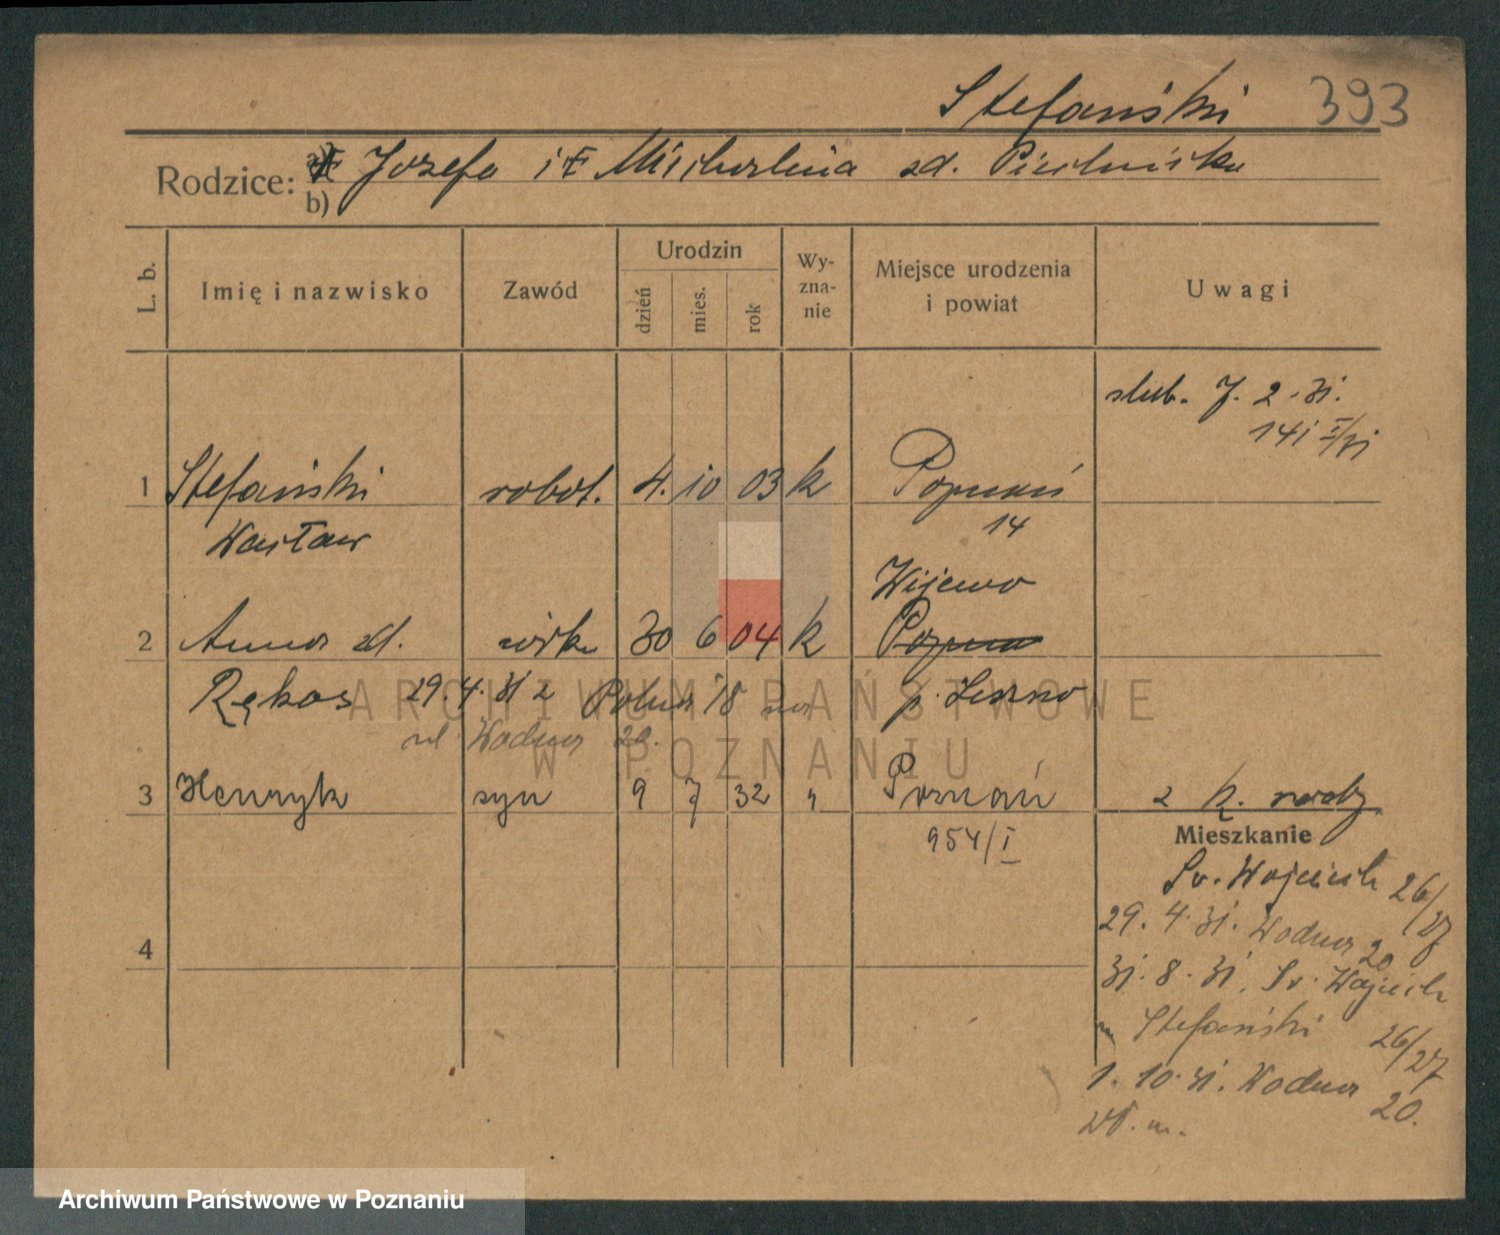 Stefański 393
Rodzice: a) Józefa i Michalina zd.
b)
L. b.
Imię i nazwisko
Zawód
Urodzin
dzień
mies.
rok
Wy-
zna-
nie
Miejsce urodzenia
i powiat
Uwagi
ślub. 7. 2. 31.
141 I/31
1 Stefański robot. 4. 10 03 k Poznań
Wacław 14
Wijewo
2 Anna zd. 30 6 04 k Pozna
Rękos 29.4.31 z Polna 18 p. Leszno
ul Wodna 20.
3 Henryk syn 9 7 32 " Poznań z k. rodz
954/I
Mieszkanie
Św. Wojciech 26/27
29. 4. 31. Wodna 20
31. 8. 31. Św. Wojciech
m Stefański 26/27
1. 10. 31. Wodna 20.
wł. m.
4
ARCHIWUM PAŃSTWOWE
W POZNANIU
Archiwum Państwowe w Poznaniu